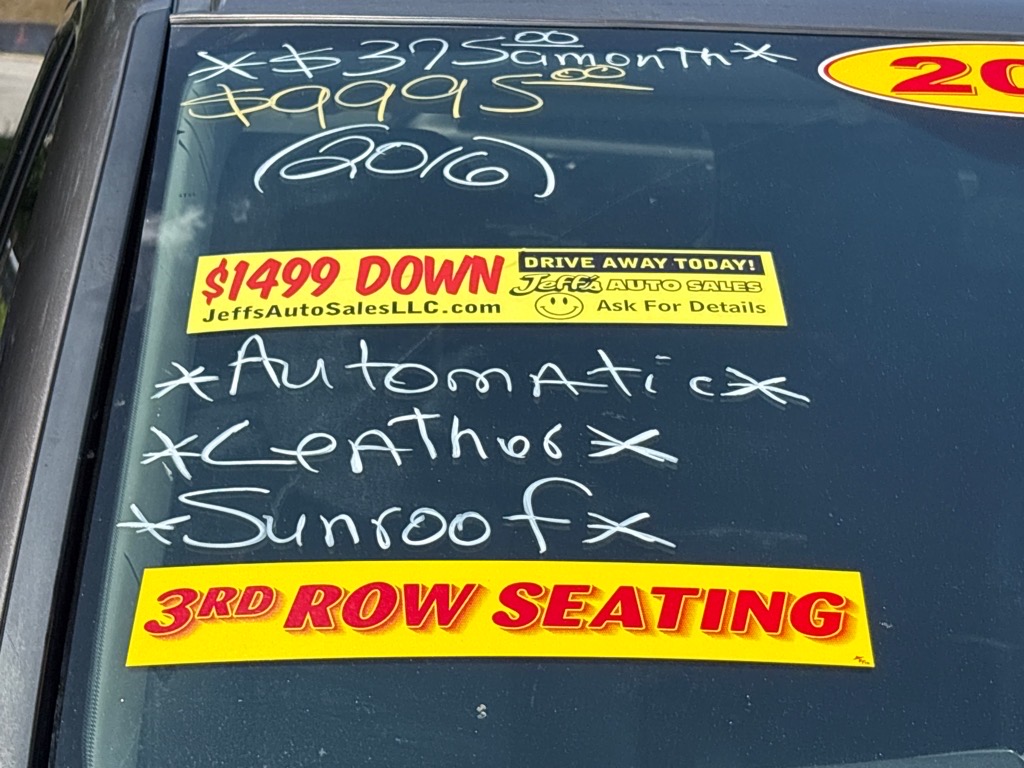 *$375.00 a month*
20
$9995.00
(2016)
$1499 DOWN
JeffsAutoSalesLLC.com
DRIVE AWAY TODAY!
Jeff's AUTO SALES
Ask For Details
*Automatic*
*Leather*
*Sunroof*
3RD ROW SEATING